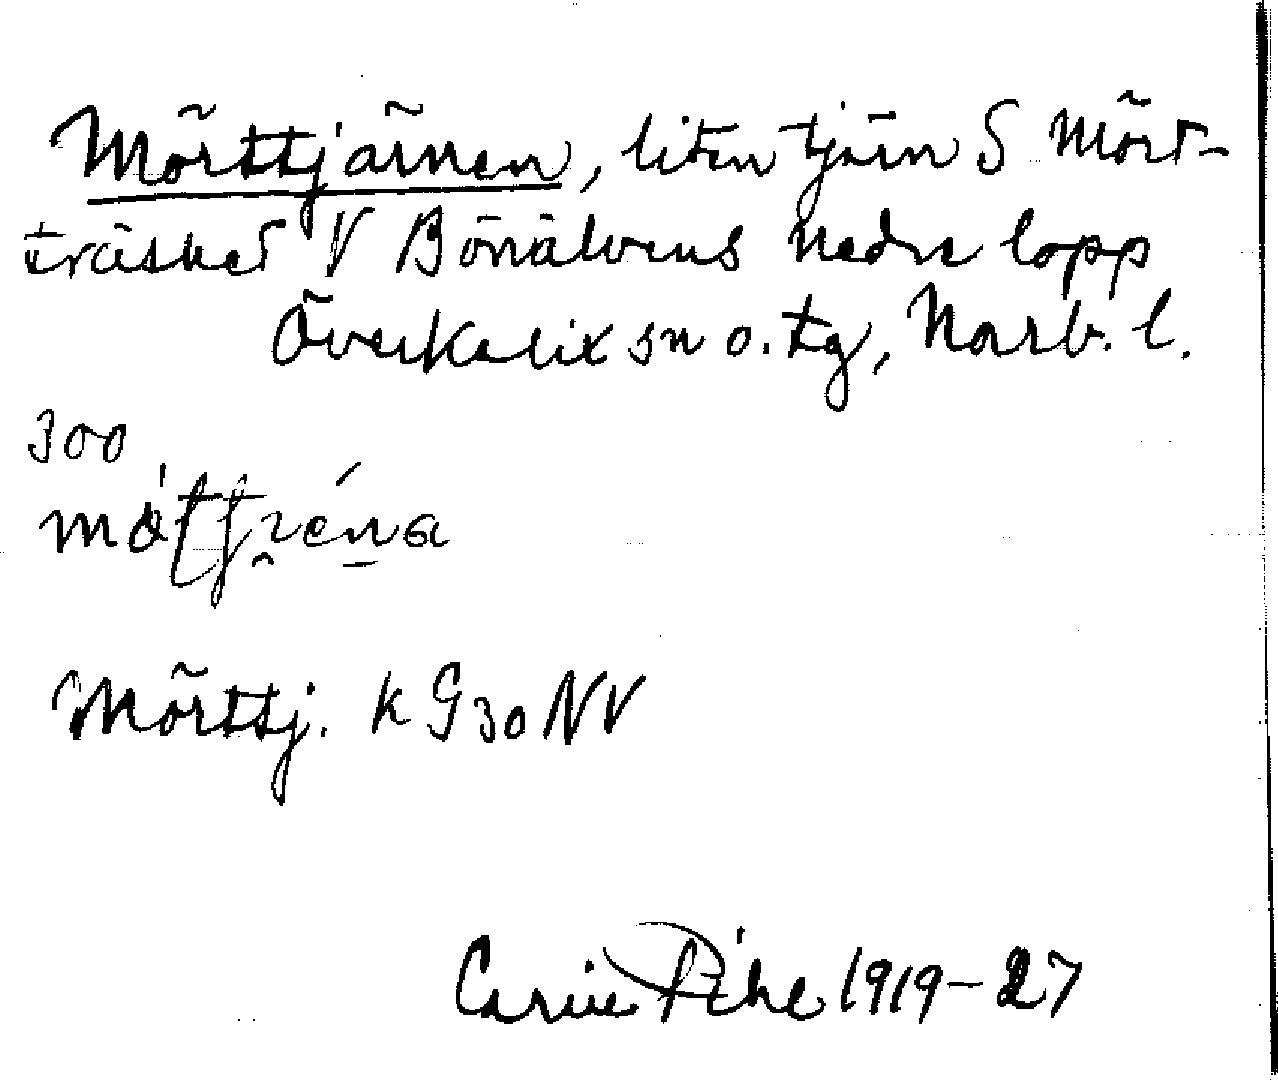 Mörttjärnen, liten tjärn S Mört-
träsket V Bönälvens nedre lopp
Överkalix sn o. tg, Norrb. l.
300
Mörttj. K G 30 NV
Carin Pihl 1919-27